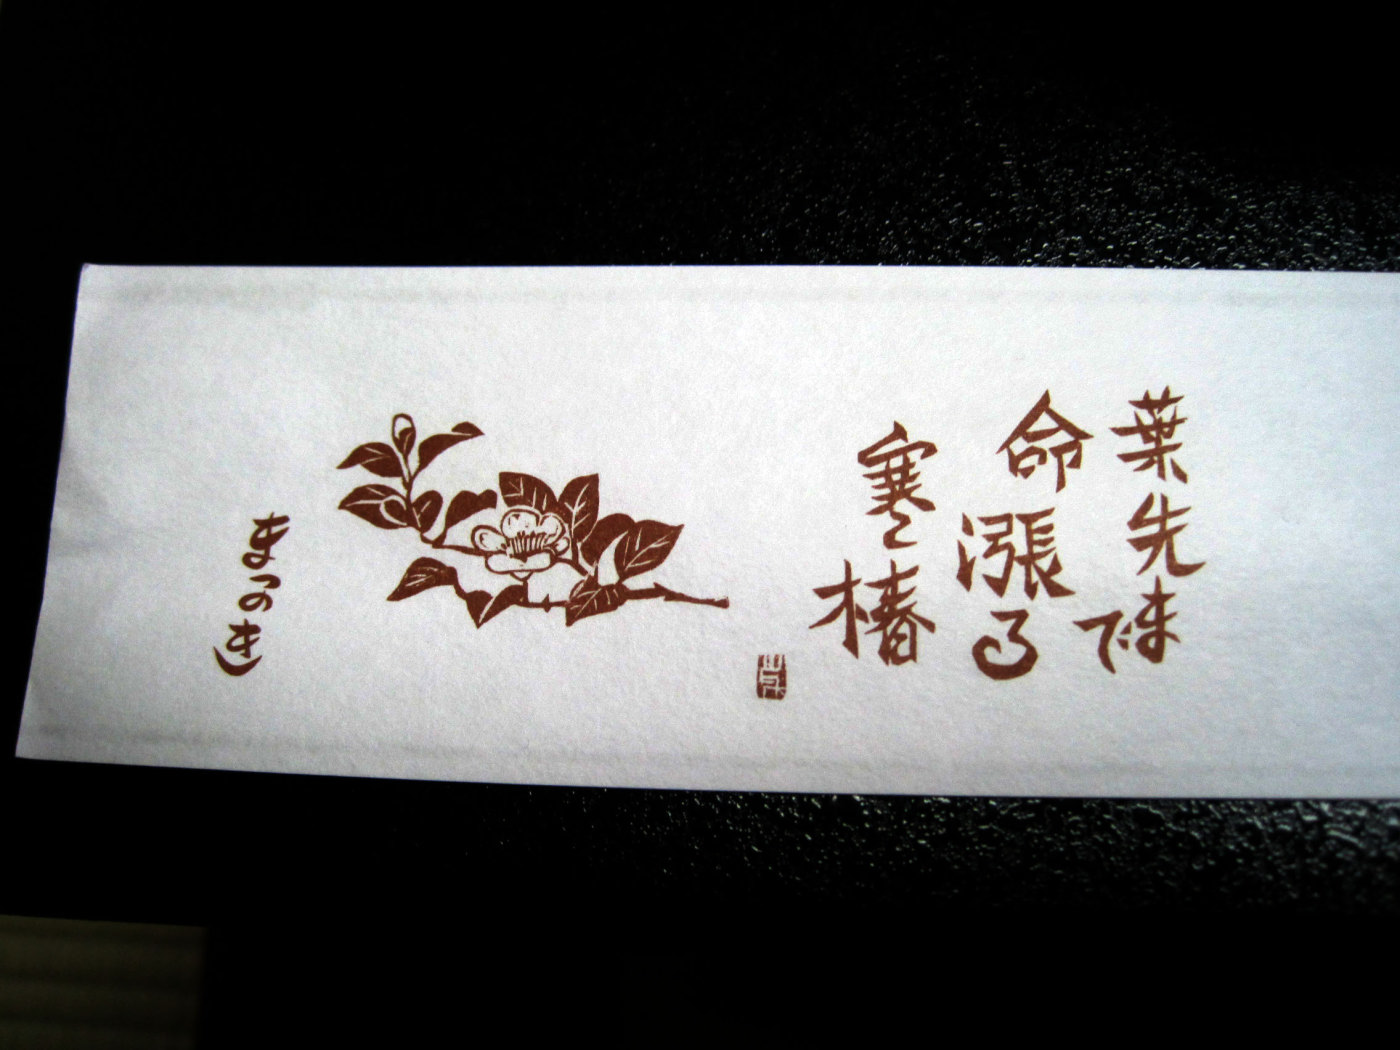 葉先まで
命漲る
寒椿
まつのき